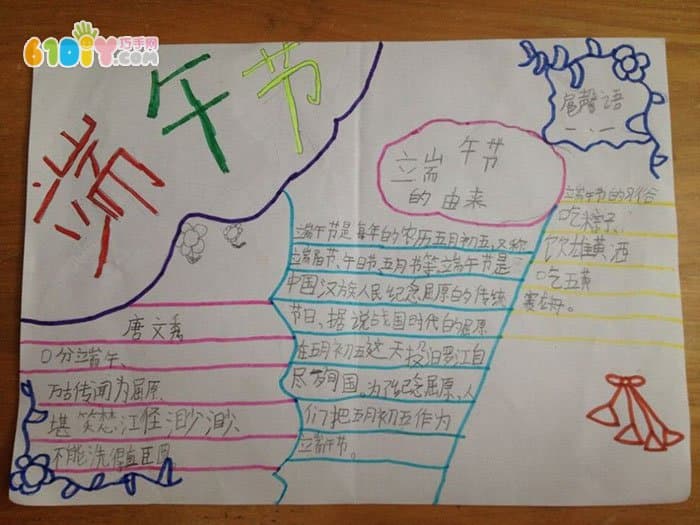 61DIY巧手网.com
端午节
语
端午节
的由来
端午节是每年的农历五月初五,又称
端阳节、午日节、五月节等端午节是
中国汉族人民纪念屈原的传统
节日、据说战国时代的屈原
在五月初五这天投汨罗江自
尽 国。为了纪念屈原、人
们把五月初五作为
端午节。
唐文秀
分端午、
万古传闻为屈原.
堪笑楚江怪渺渺、
不能洗 直臣
端午节的习俗
吃粽子
饮雄黄酒
吃五节
赛龙舟。